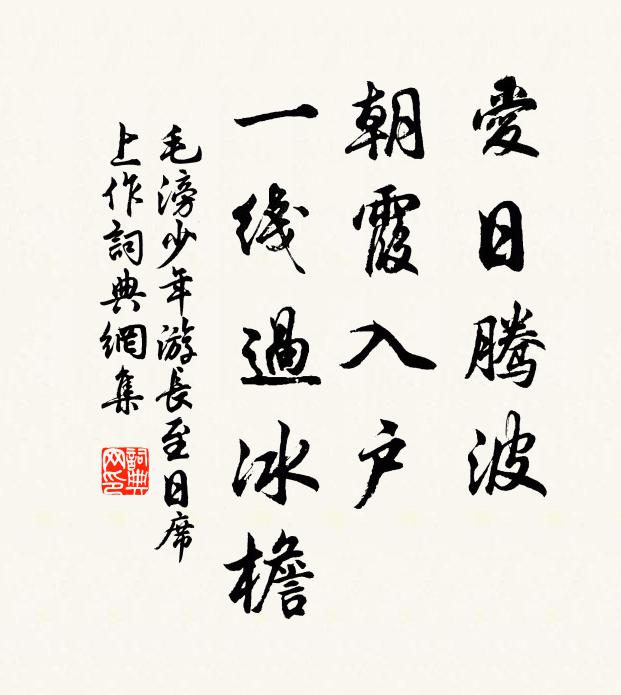 愛日騰波
朝霞入户
一线過冰檐
毛滂少年游長至日席
上作詞典網集
詞典
网印